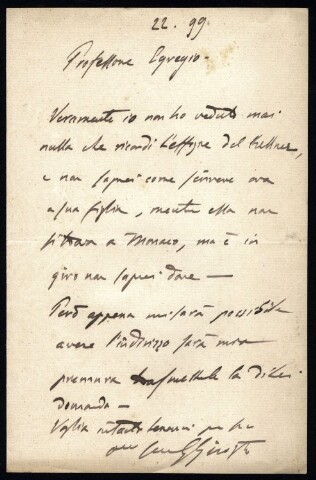 22. 99
Professore Egregio -
Veramente io non ho veduto mai
nulla che ricordi l'effigie del
e non saprei come scrivere ora
a sua figlia, mentre ella non
si trova a Monaco, ma è in
giro non saprei dove —
Però appena mi sarà possibile
avere l'indirizzo sarà mia
premura trasmettere la di Lei
domanda —
Voglia intanto tenermi per